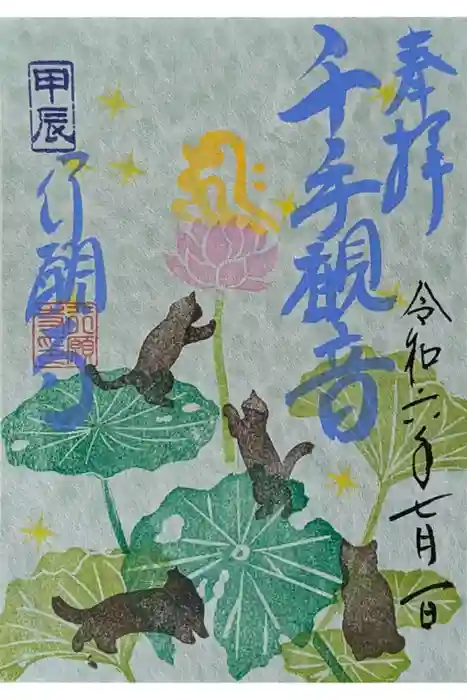 奉拝
令和六年七月一日
千手観音
甲辰
行願寺